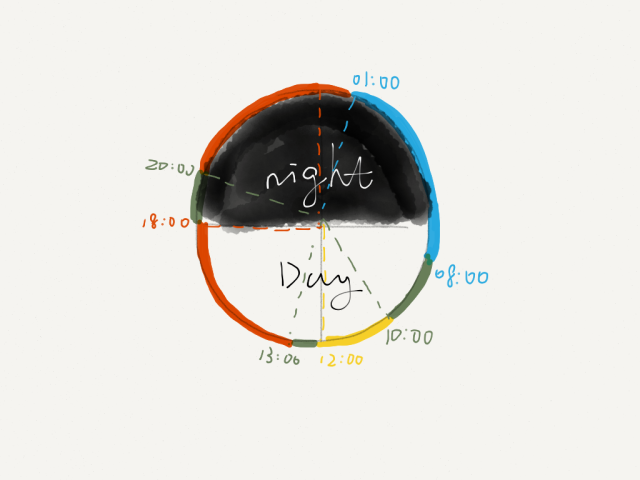 01:00
20:00
night
18:00
Day
08:00
10:00
13:00
12:00